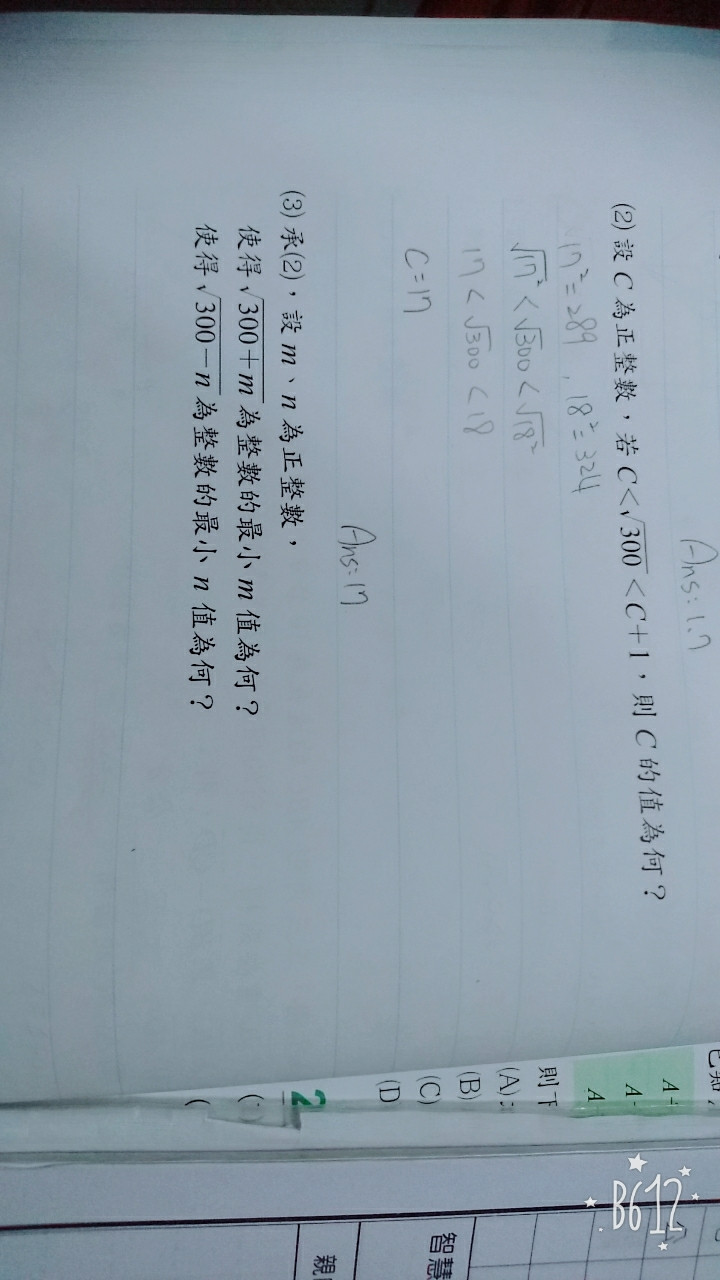 Ans: 1.7
(2) 設 C 為正整數，若 C<√300<C+1，則 C 的值為何？
17²=289 , 18²=324
√17² < √300 < √18²
17 < √300 < 18
C=17
Ans: 17
(3) 承(2)，設 m、n 為正整數，
使得 √300+m 為整數的最小 m 值為何？
使得 √300−n 為整數的最小 n 值為何？
A
A-
A
則下
(A)
(B)
(C)
(D
2
(
(
B612
智慧
親